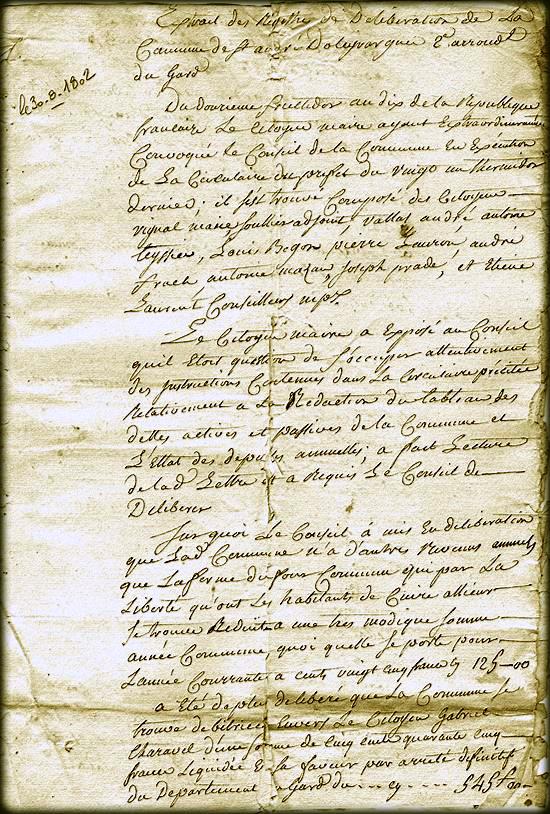 Extrait des Registre de Deliberation de La
Commune de St andré Doleyrargues
du Gard
le 30. 8. 1802
Du douzieme fructidor an dix de la Republique
francaise Le Citoyen maire ayant Extraordinairement
Convoqué le Conseil de la Commune En Execution
de La Circulaire du prefet du vingt un thermidor
dernier; il s'est trouvé Composé des Citoyens
vignal maire soullier adjoint, vallat andré antoine
teyssier, Louis Begon pierre Lauron, andré
antoine mazan, joseph prade, et Etiene
Laurent Conseillers
Le Citoyen maire a Exposé au Conseil
quil Etoit question de s'occuper attentivement
des instructions Contenues dans La Circulaire précitée
Relativement a La Redaction du tableau des
dettes actives et passives de la Commune et
L'Ettat des depenses annuelles; a fait Lecture
de lad Lettre et a Requis Le Conseil de
Deliberer
Sur quoi Le Conseil à mis En deliberation
que Lad Commune n'a d'autres Revenus annuels
que La ferme du four Commun qui par La
Liberté qu'ont Les habitants de Cuire allieur
se trouve Reduite a une tres modique somme
année Commune, quoi quelle se porte pour
L'année Courrante a cent vingt cinq francs 125-00
a Eté de plus deliberé que La Commune se
trouve debitrice Envers Le Citoyen Gabriel
Charavel d'une somme de Cinq cents quarante cinq
francs Liquidée à sa faveur par arreté definitif
du Departement du Gard du 545 f 00